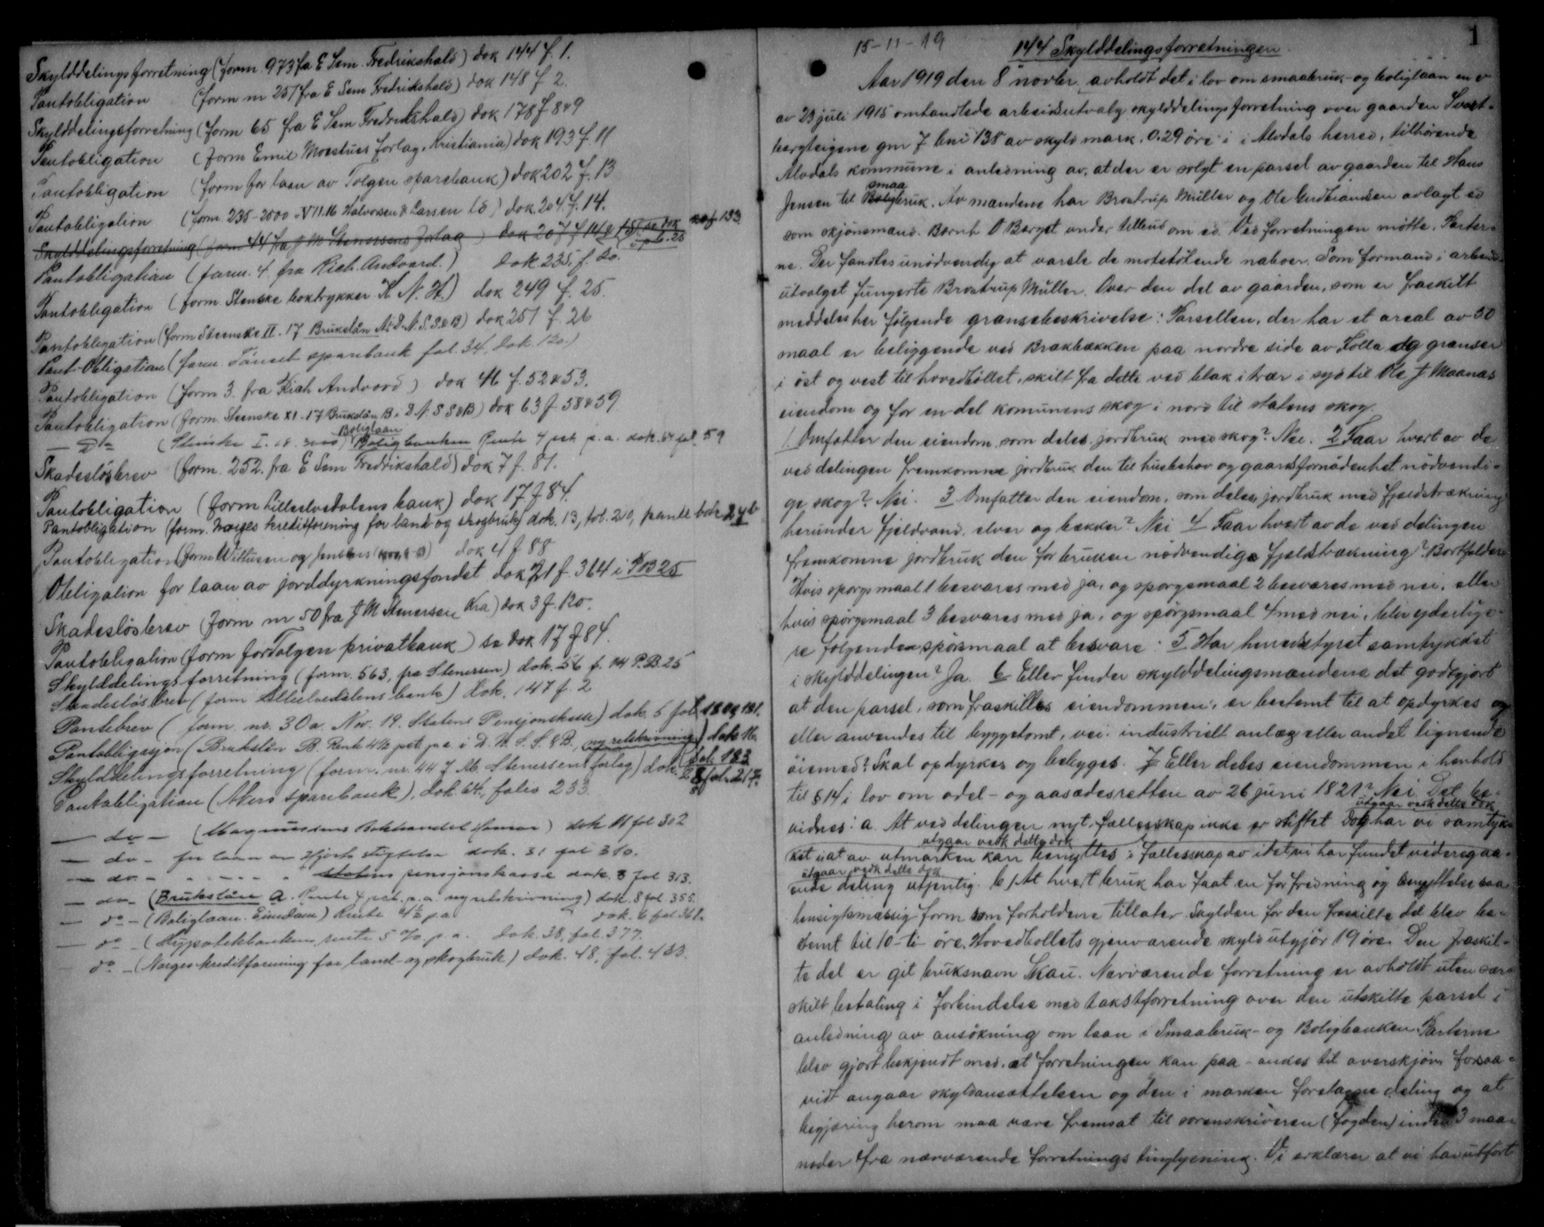 Skylddelingsforretning (form 973 fra E Sem Fredrikshald) dok 144 f. 1.
Pantobligation (form nr 251 fra E Sem Fredrikshald) dok 148 f 2.
Skylddelingsforretning (form 65 fra E Sem Fredrikshald) dok 178 f 8 & 9
Pantobligation (form Emil Moestues forlag, Kristiania) dok 193 f. 11
Pantobligation (form for laan av Tolgen sparebank) dok 202 f. 13
Pantobligation (form. 235-2000-VII.16 Halvorsen & Larsen) dok 204 f. 14.
Skylddelingsforretning (form 44 fra J M Stenersens Forlag) dok 207 f 14
Pantobligation (form. 4. fra Rich. Andvord.) dok 235. f. 20.
Pantobligation (form Stenske boktrykker K. N. H.) dok 249 f. 25.
Pantobligation (form Steenske II. 17 Brukslån) dok 251 f 26
Pant-Obligation (form Tönset sparebank fol. 34. dok 120.)
Pantobligation (form 3. fra Rich Andvord) dok 46 f. 52 & 53.
Pantobligation (form. Steenske XI. 17 Brukslån B.) dok 63 f. 58 & 59
— Do (Stenske I. 18. 3000) Boliglaan Boligbanken Rente 4 pct p.a. dok. 64 fol. 59
Skadesløsbrev (form. 252. fra E Sem Fredrikshald) dok 7 f. 81.
Pantobligation (form Lilleelvedalens bank) dok 17 f 84.
Pantobligation (form. Norges kreditforening for land og skogbruk) dok. 13, fol. 210, pante bok 24b
Pantobligation (form Wittusen og Jensen) dok 4 f 88
Obligation for laan av jorddyrkningsfondet dok 21 f. 364 i PB 25
Skadesløsbrev (form nr 50 fra J M Stenersen Kra) dok 3 f. 120.
Pantobligation (form for Tolgen privatbank) se dok 17 f 84.
Skylddelingsforretning (form. 563, fra Stenersen) dok. 56 f. 14 P.B. 25
Skadesløsbrev (form Lilleelvedalens bank) dok. 147 f. 2
Pantebrev (form nr. 30a. Nov. 19. Statens Pensjonskasse) dok. 5 fol. 180 og 181.
Pantobligasjon (Brukslån B. Rente 4½ pct. p.a. i D. N. S. S. & B. ny utskrivning) dok 16. fol. 183
Skylddelingsforretning (form. nr. 44 J. M. Stenersens forlag) dok. 8 fol. 217.
Pantobligation (Akers sparebank), dok 64, folio 233.
— do — (Magnussens Bokhandel Hamar) dok 11 fol 302
— do — for laan av Hjorts stiftelse dok. 31 fol 310.
— do — " — " — Statens pensjonskasse dok. 8 fol 313.
— do — (Brukslån A. Rente 4 pct. p.a. ny utskrivning) dok. 8 fol 355.
— do — (Boliglaan. Eiendom) Rente 4½ p a dok. 6 fol. 368.
— do — (Hypotekbanken, rente 5 % p. a. dok. 38, fol. 377.
— do — (Norges kreditforening for land og skogbruk) dok. 48, fol. 483.
1
15-11-19 144 Skylddelingsforretningen.
Aar 1919 den 8 novbr. avholdt det i lov om smaabruk- og boliglaan m v
av 23 juli 1915 omhandlede arbeidsutvalg skylddelingsforretning over gaarden Svart-
bergteigene gnr 7 bnr 138 av skyld mark. 0.29 øre i i Alvdals herred, tilhørende
Alvdals kommune i anledning av, at der er solgt en parsel av gaarden til Hans
Jensen til smaabruk. Av mændene har Brostrup Müller og Ole Kristiansen avlagt ed
som skjønsmænd. Bernt O Berget under tilbud om ed. Ved forretningen møtte. Parter-
ne. Der fandtes unødvendig at varsle de motstøtende naboer. Som formand i arbeids
utvalget fungerte Brostrup Müller. Over den del av gaarden, som er fraskilt
meddeles her følgende grænsebeskrivelse: Parsellen, der har et areal av 50
maal er beliggende ved Brækbækken paa nordre side av Folla og grænser
i øst og vest til hovedbøllet, skilt fra dette ved blak i trær i syd til Ole J. Maanas
eiendom og for en del komunens skog i nord til statens skog.
1. Omfatter den eiendom, som deles, jordbruk med skog? Nei. 2 Faar hvert av de
ved delingen fremkomne jordbruk den til husbehov og gaardsfornødenhet nødvendi-
ge skog? Nei. 3 Omfatter den eiendom, som deles, jordbruk med fjeldstrækning
herunder fjeldvand, elver og bækker? Nei 4 Faar hvert av de ved delingen
fremkomne jordbruk den for bruken nødvendige fjeldstrækning? Bortfalder
Hvis spørgsmaal 1 besvares med ja, og spørgsmaal 2 besvares med nei, eller
hvis spørgsmaal 3 besvares med ja, og spørgsmaal 4 med nei, blir yderlige-
re følgende spørsmaal at besvare: 5 Har herredstyret samtykket
i skylddelingen? Ja. 6 Eller finder skylddelingsmændene det godtgjort
at den parsel, som fraskilles eiendommen, er bestemt til at opdyrkes og
eller anvendes til byggetomt, vei, industrielt anlæg eller andet lignende
øiemed? Skal opdyrkes og bebygges. 7 Eller deles eiendommen i henhold
til § 14 i lov om odel- og aasædesretten av 26 juni 1821? Nei Det be-
utgaar vedk dette dok
vidnes: a. At ved delingen nyt fællesskap ikke er stiftet Dog har vi samtyk-
utgaar vedk dette dok
ket i at av utmarken kan benyttes i fællesskap av idet vi har fundet videregaa-
utgaar vedk dette dok
ende deling utjenlig. b) At hvert bruk har faat en for fredning og benyttelse saa
hensigtsmæssig form som forholdene tillater Skylden for den fraskilte del blev be-
stemt til 10-ti-øre. Hovedbøllets gjenværende skyld utgjør 19 øre. Den fraskil-
te del er git bruksnavn Skau. Nærværende forretning er avholdt uten sær-
skilt betaling i forbindelse med takstforretning over den utskilte parsel i
anledning av ansøkning om laan i Smaabruk- og Boligbanken. Parterne
blev gjort bekjendt med, at forretningen kan paa-andes til overskjøn forsaa-
vidt angaar skyldansættelsen og den i marken foretagne deling og at
begjæring herom maa være fremsat til sorenskriveren (fogden) inden 3 maa-
neder fra nærværende forretnings tinglysning. Vi erklærer at vi har utført